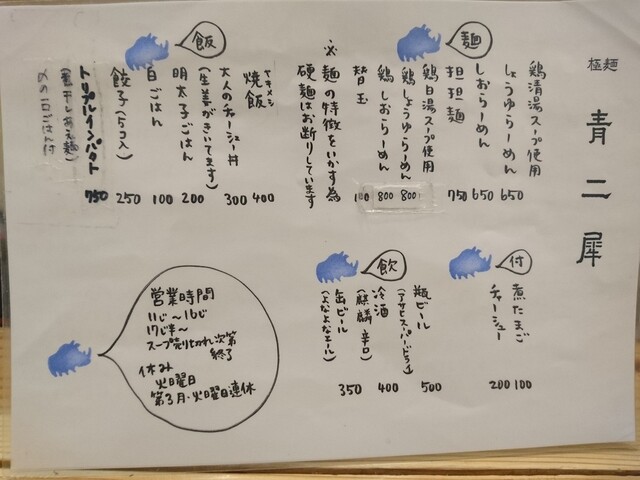 極麺 青二犀
麺
鶏清湯スープ使用
しょうゆらーめん 650
しおらーめん 650
担担麺 750
鶏白湯スープ使用
鶏しょうゆらーめん 800
鶏しおらーめん 800
替玉 100
※麺の特徴をいかす為
硬麺はお断りしています
飯
ヤキメシ
焼飯 400
大人のチャーシュー丼 300
(生姜がきいてます)
明太子ごはん 200
白ごはん 100
餃子(5コ入) 250
トリプルインパクト 750
(煮干しあえ麺)
〆の一口ごはん付
付
煮たまご 100
チャーシュー 200
飲
瓶ビール 500
(アサヒスーパードライ)
冷酒 400
(麒麟 辛口)
缶ビール 350
(よなよなエール)
営業時間
11じ〜16じ
17じ半〜
スープ売り切れ次第
終了
休み
火曜日
第3月・火曜日連休